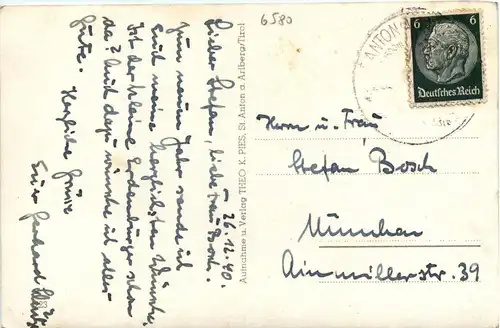 6580
26.12.40.
Lieber Stefan, liebe Frau Bosch.
Zum neuen Jahr sende ich
Euch meine herzlichsten Wünsche.
Ist der kleine Erdenbürger schon
da? Auch dazu wünsche ich alles
Gute. Herzliche Grüsse
Euer Gerhard
Aufnahme u. Verlag THEO K. PIES, St. Anton a. Arlberg/Tirol
ANTON
6 6
Deutsches Reich
Herrn u. Frau
Stefan Bosch
München
Ainmillerstr. 39